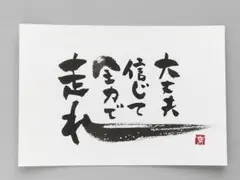 大丈夫
信じて
全力で
走れ